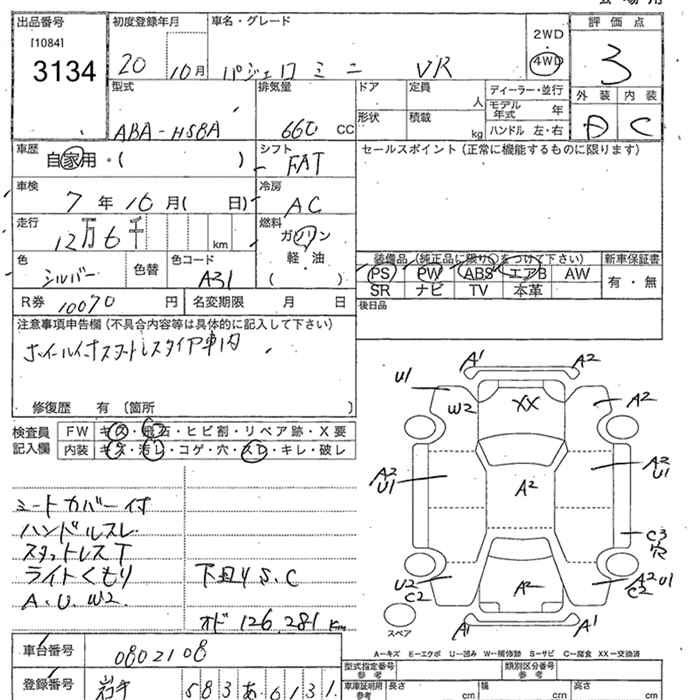 出品番号
[1084]
3134
初度登録年月
20 10月
車名・グレード
パジェロ ミニ VR
2WD
4WD
評価点
3
外装 内装
D C
型式
ABA-H58A
排気量
660 CC
ドア
形状
定員 人
積載 kg
ディーラー・並行
モデル年式 年
ハンドル 左・右
車歴
自家用・( )
シフト
FAT
セールスポイント(正常に機能するものに限ります)
車検
7年10月( 日)
冷房
AC
走行
12万6千 km
燃料
ガソリン
軽・油
( )
色
シルバー
色替
色コード
A31
装備品(純正品に限り○をつけて下さい)
PS PW ABS エアB AW
SR ナビ TV 本革
新車保証書
有・無
R券 10070 円
名変期限 月 日
後日品
注意事項申告欄(不具合内容等は具体的に記入して下さい)
ホイール付スタットレスタイヤ車内
修復歴 有 〔箇所 〕
検査員
記入欄
FW キズ・飛石・ヒビ割・リペア跡・X要
内装 キズ・汚レ・コゲ・穴・スレ・キレ・破レ
シートカバー付
ハンドルスレ
スタットレスT
ライトくもり
下回りS.C
A.U.W2.
オド 126,281 Km
A1 A2
U1 W2 XX A2
A2
U1 A2 A2
U1
C3
穴
U2
C2 A2 A2 U1
C2
A1 A1
スペア
A-キズ E-エクボ U-凹み W-補修跡 S-サビ C-腐食 XX-交換済
車台番号
0802108
登録番号
岩手 583 あ 6131
型式指定番号
参考
類別区分番号
参考
車庫証明用
参考
長さ cm
幅 cm
高さ cm